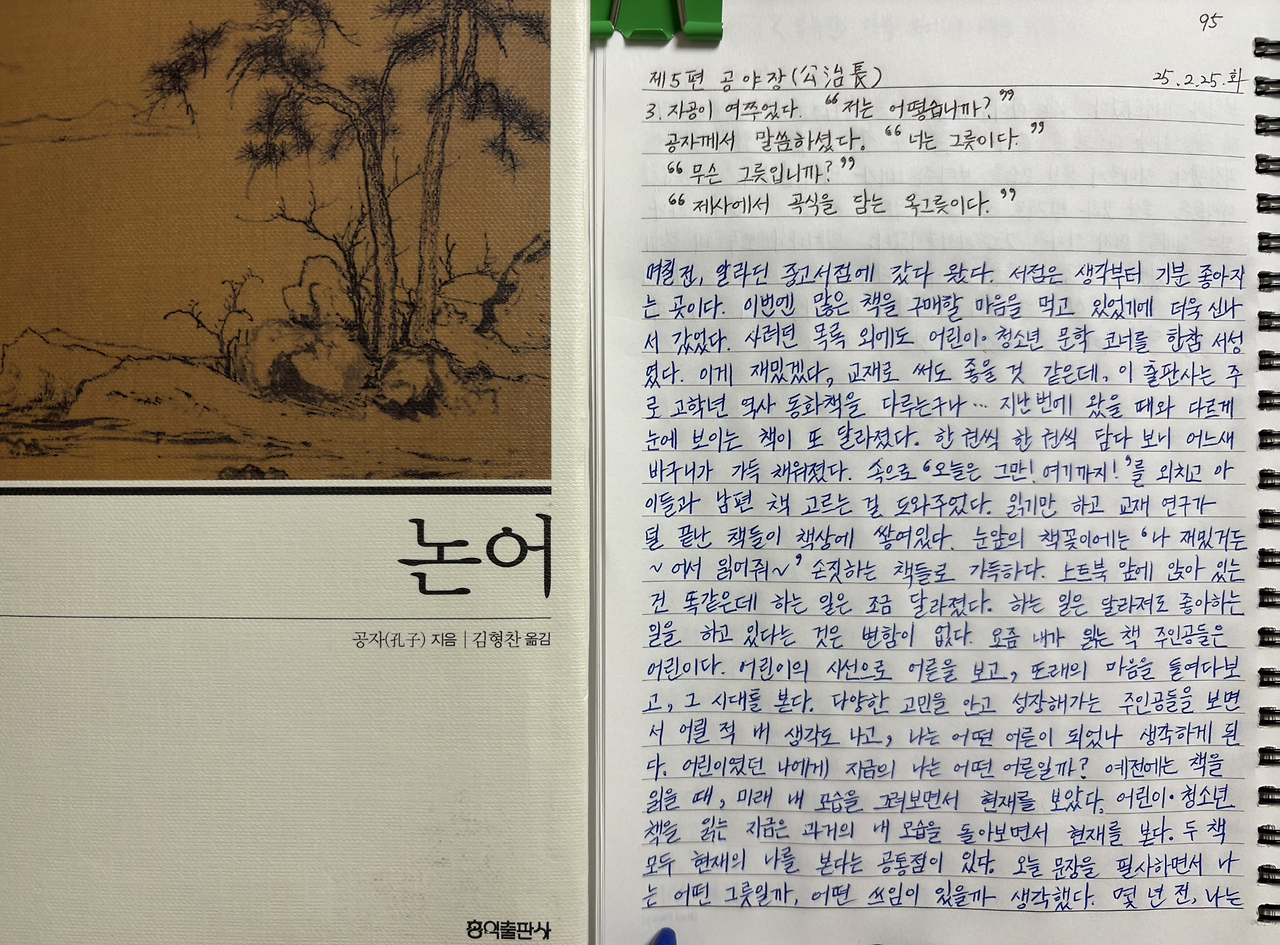 논어
공자(孔子) 지음 | 김형찬 옮김
홍익출판사
95
제5편 공야장(公冶長) 25.2.25.화
3. 자공이 여쭈었다. “저는 어떻습니까?”
공자께서 말씀하셨다. “너는 그릇이다.”
“무슨 그릇입니까?”
“제사에서 곡식을 담는 옥그릇이다.”
며칠 전, 알라딘 중고서점에 갔다 왔다. 서점은 생각부터 기분 좋아지
는 곳이다. 이번엔 많은 책을 구매할 마음을 먹고 있었기에 더욱 신나
서 갔었다. 사려던 목록 외에도 어린이·청소년 문학 코너를 한참 서성
였다. 이게 재밌겠다, 교재로 써도 좋을 것 같은데, 이 출판사는 주
로 고학년 역사 동화책을 다루는구나… 지난번에 왔을 때와 다르게
눈에 보이는 책이 또 달라졌다. 한 권씩 한 권씩 담다 보니 어느새
바구니가 가득 채워졌다. 속으로 ‘오늘은 그만! 여기까지!’를 외치고 아
이들과 남편 책 고르는 걸 도와주었다. 읽기만 하고 교재 연구가
덜 끝난 책들이 책상에 쌓여있다. 눈앞의 책꽂이에는 ‘나 재밌거든
~ 어서 읽어줘~’ 손짓하는 책들로 가득하다. 노트북 앞에 앉아 있는
건 똑같은데 하는 일은 조금 달라졌다. 하는 일은 달라져도 좋아하는
일을 하고 있다는 것은 변함이 없다. 요즘 내가 읽는 책 주인공들은
어린이다. 어린이의 시선으로 어른을 보고, 또래의 마음을 들여다보
고, 그 시대를 본다. 다양한 고민을 안고 성장해가는 주인공들을 보면
서 어릴 적 내 생각도 나고, 나는 어떤 어른이 되었나 생각하게 된
다. 어린이였던 나에게 지금의 나는 어떤 어른일까? 예전에는 책을
읽을 때, 미래 내 모습을 그려보면서 현재를 보았다. 어린이·청소년
책을 읽는 지금은 과거의 내 모습을 돌아보면서 현재를 본다. 두 책
모두 현재의 나를 본다는 공통점이 있다. 오늘 문장을 필사하면서 나
는 어떤 그릇일까, 어떤 쓰임이 있을까 생각했다. 몇 년 전, 나는